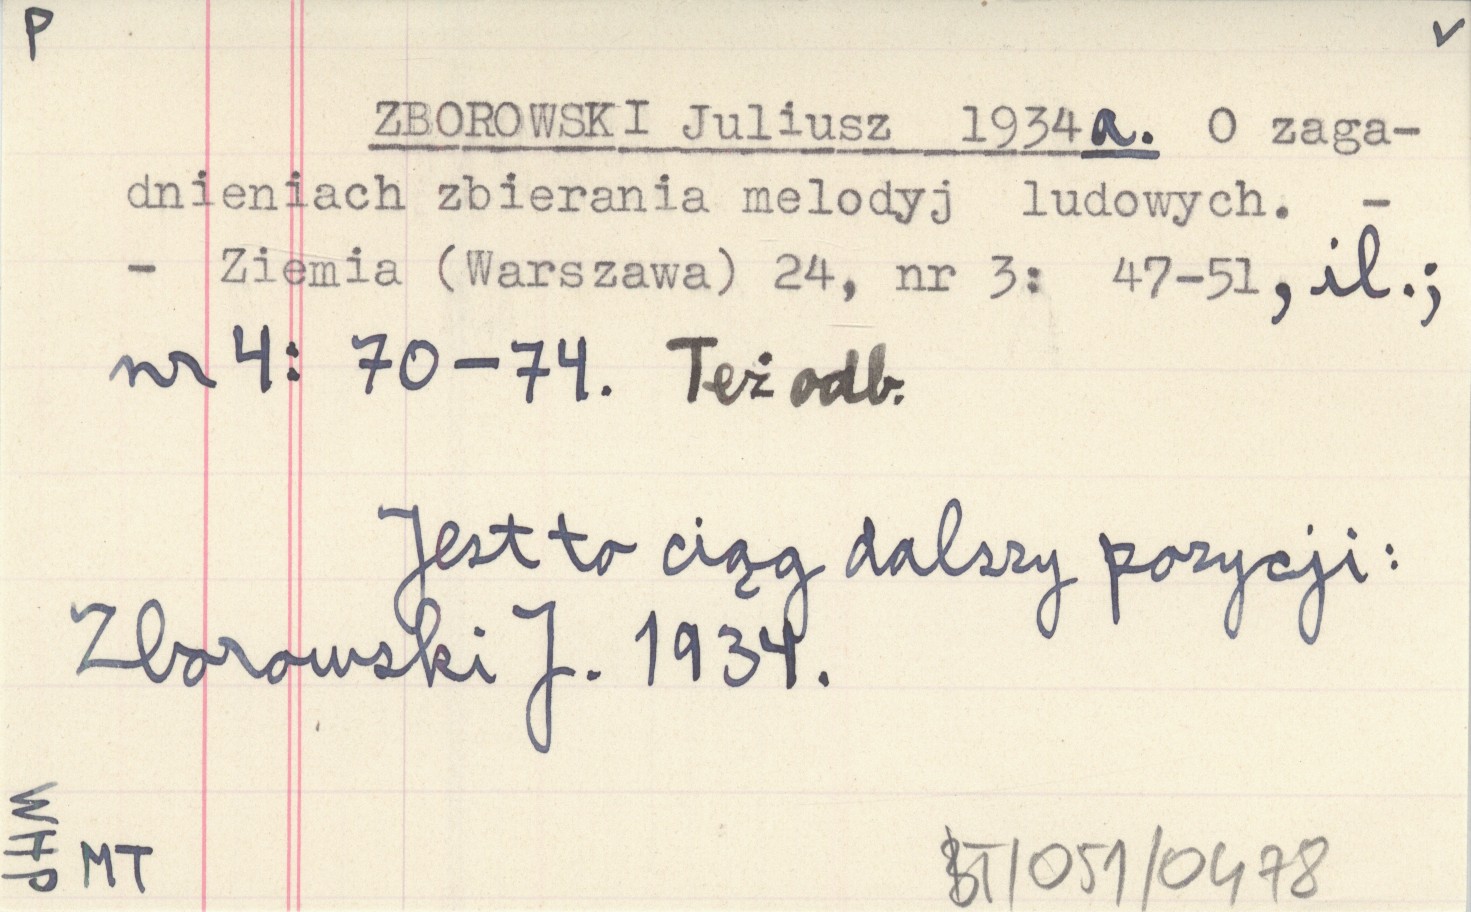 P v
ZBOROWSKI Juliusz 1934a. O zaga-
dnieniach zbierania melodyj ludowych. -
- Ziemia (Warszawa) 24, nr 3: 47-51, il.;
nr 4: 70-74. Też odb.
Jest to ciąg dalszy pozycji:
Zborowski J. 1934.
MT
/051/0478